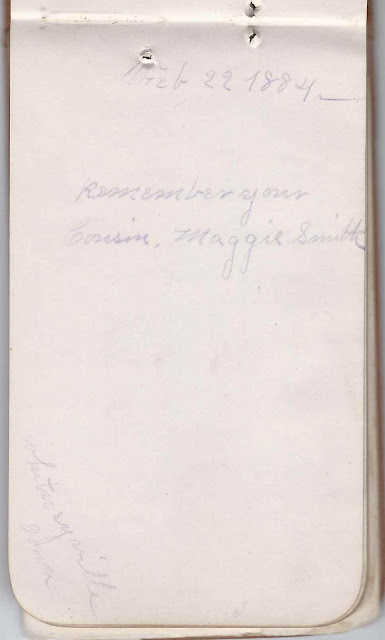 Feb 22 1884.
Remember your
Cousin. Maggie Smith
Whitneyville